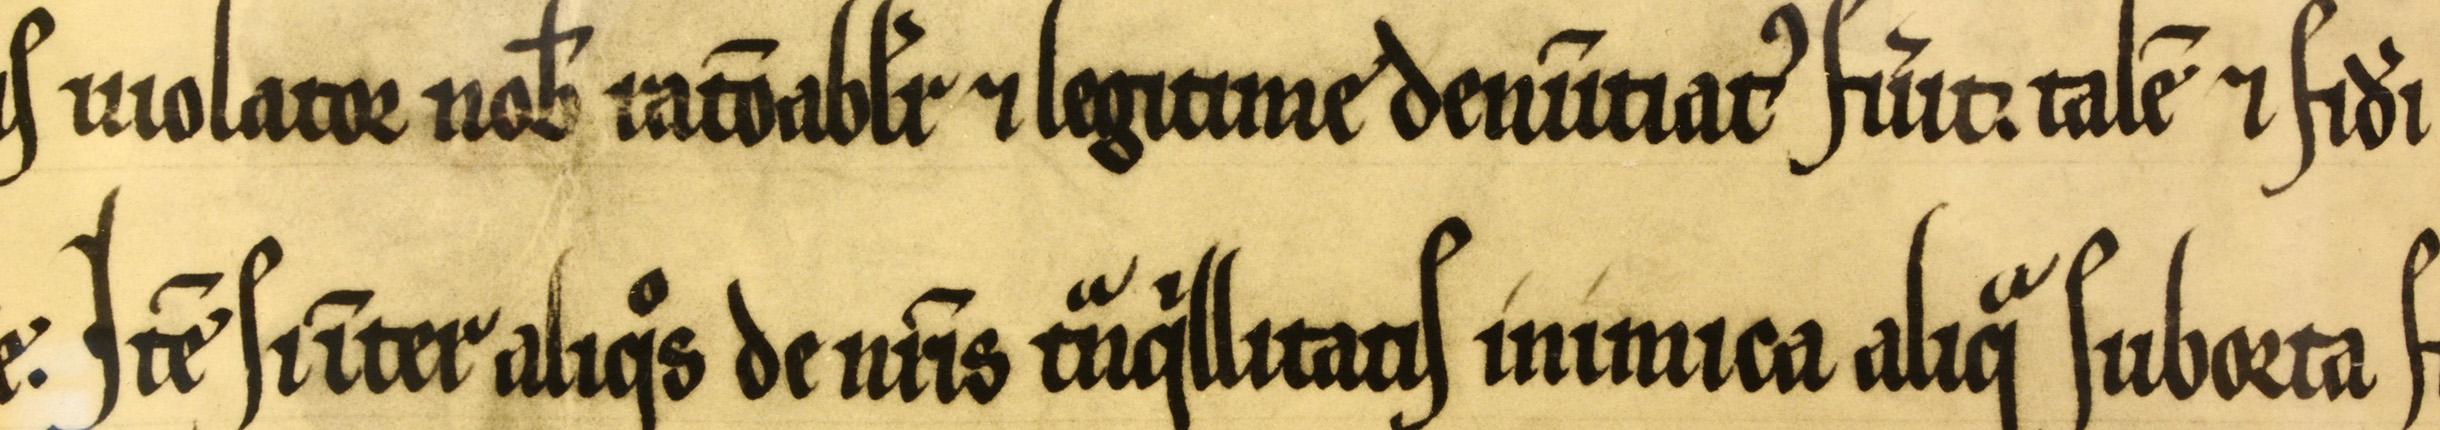 uiolator nob̄ ratōabl'r ⁊ legitime denūtiat᾽ fu̾it. talē ⁊ fid̾i
Itē si īter aliqͦs de nr̄is tnͣqͥllitatis inimica aliqͣ suborta